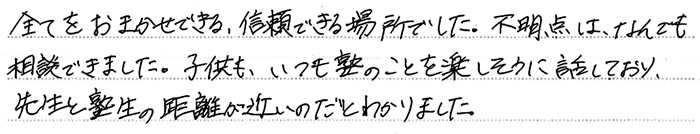 全てをおまかせできる、信頼できる場所でした。不明点は、なんでも
相談できました。子供も、いつも塾のことを楽しそうに話しており、
先生と塾生の距離が近いのだとわかりました。